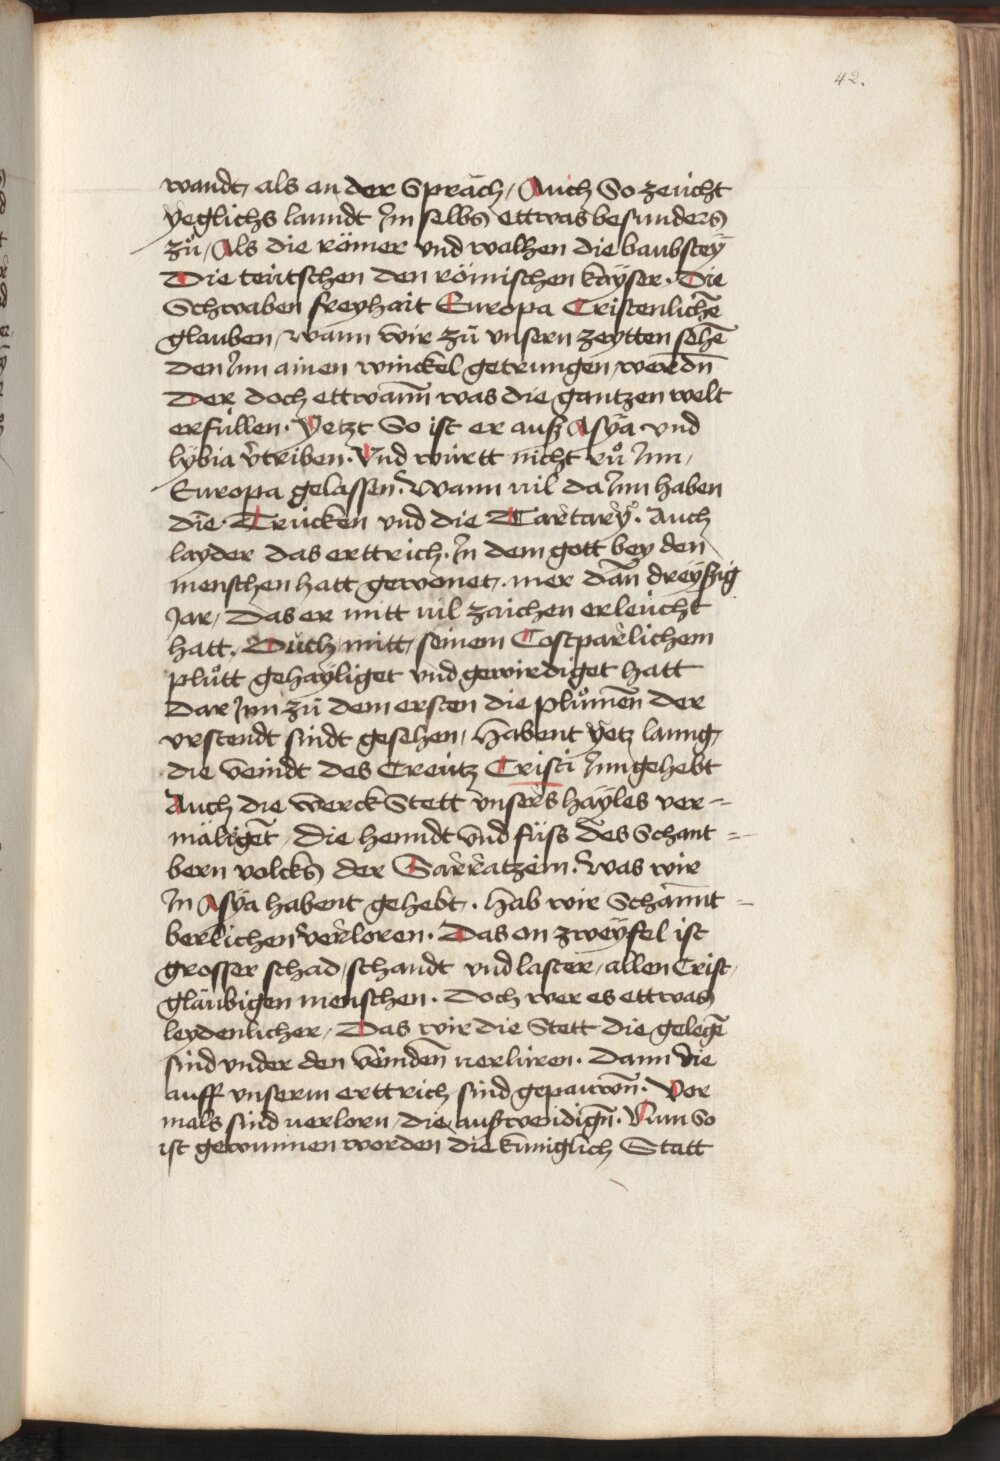 42.
wandt, als an der Spräch / Auch So zeücht
yeglichs lanndt Im selbs ettwas besunders
zů / Als die römer vnd walhen die baubstey
Die teütschen den römischen kayser · Die
Schwaben freyhait Europa Cristenlichē
glauben / wann wir zů vnsern zeytten sehē
den Inn ainen winckel getrungen werdn̄
Der doch ettwann̄ was die gantzen welt
erfüllen · Yetzt So ist er auß Asÿa vnd
lÿbia v̄triben · Vnd württ nicht rů Inn /
Europa gelassen · Wann uil da Inn haben
die Trücken vnd die Tartarÿ · Auch
layder das erttrich · In dem gott bey den
menschen hatt gewonet · mer dān dreyßig
Jar / Das er mitt uil zaichen erleücht
hatt · Auch mitt seinem Costparlichem
plůtt gehayliget vnd gewirdiget hatt
Dar Inn zů dem ersten die plůmen̄ der
vrstendt sindt gesehen / Habent yetz lanng
die veindt des Creütz Cristi Inngehebt
Auch die werck Stett vnsers hayles ver =
mäligēt / die henndt vnd füss des Schant =
bern volcks der Sarratzein · Was wir
In Asÿa habent gehebt · Hab wir Schannt =
berlichen verloren · Das on zweyfel ist
grosser schad / schandt vnd laster / allen Crist /
gläubigen menschen · Doch wer es ettwas
leydenlicher / Das wir die Stett die gelegē
sind vnder den veinden̄ uerlüren · Dann die
auff vnserm erttrich sind gepauwn̄ · Vor
mals sind uerlorn / die außwendign̄ · Nun So
ist gewunnen worden die künnglich Statt